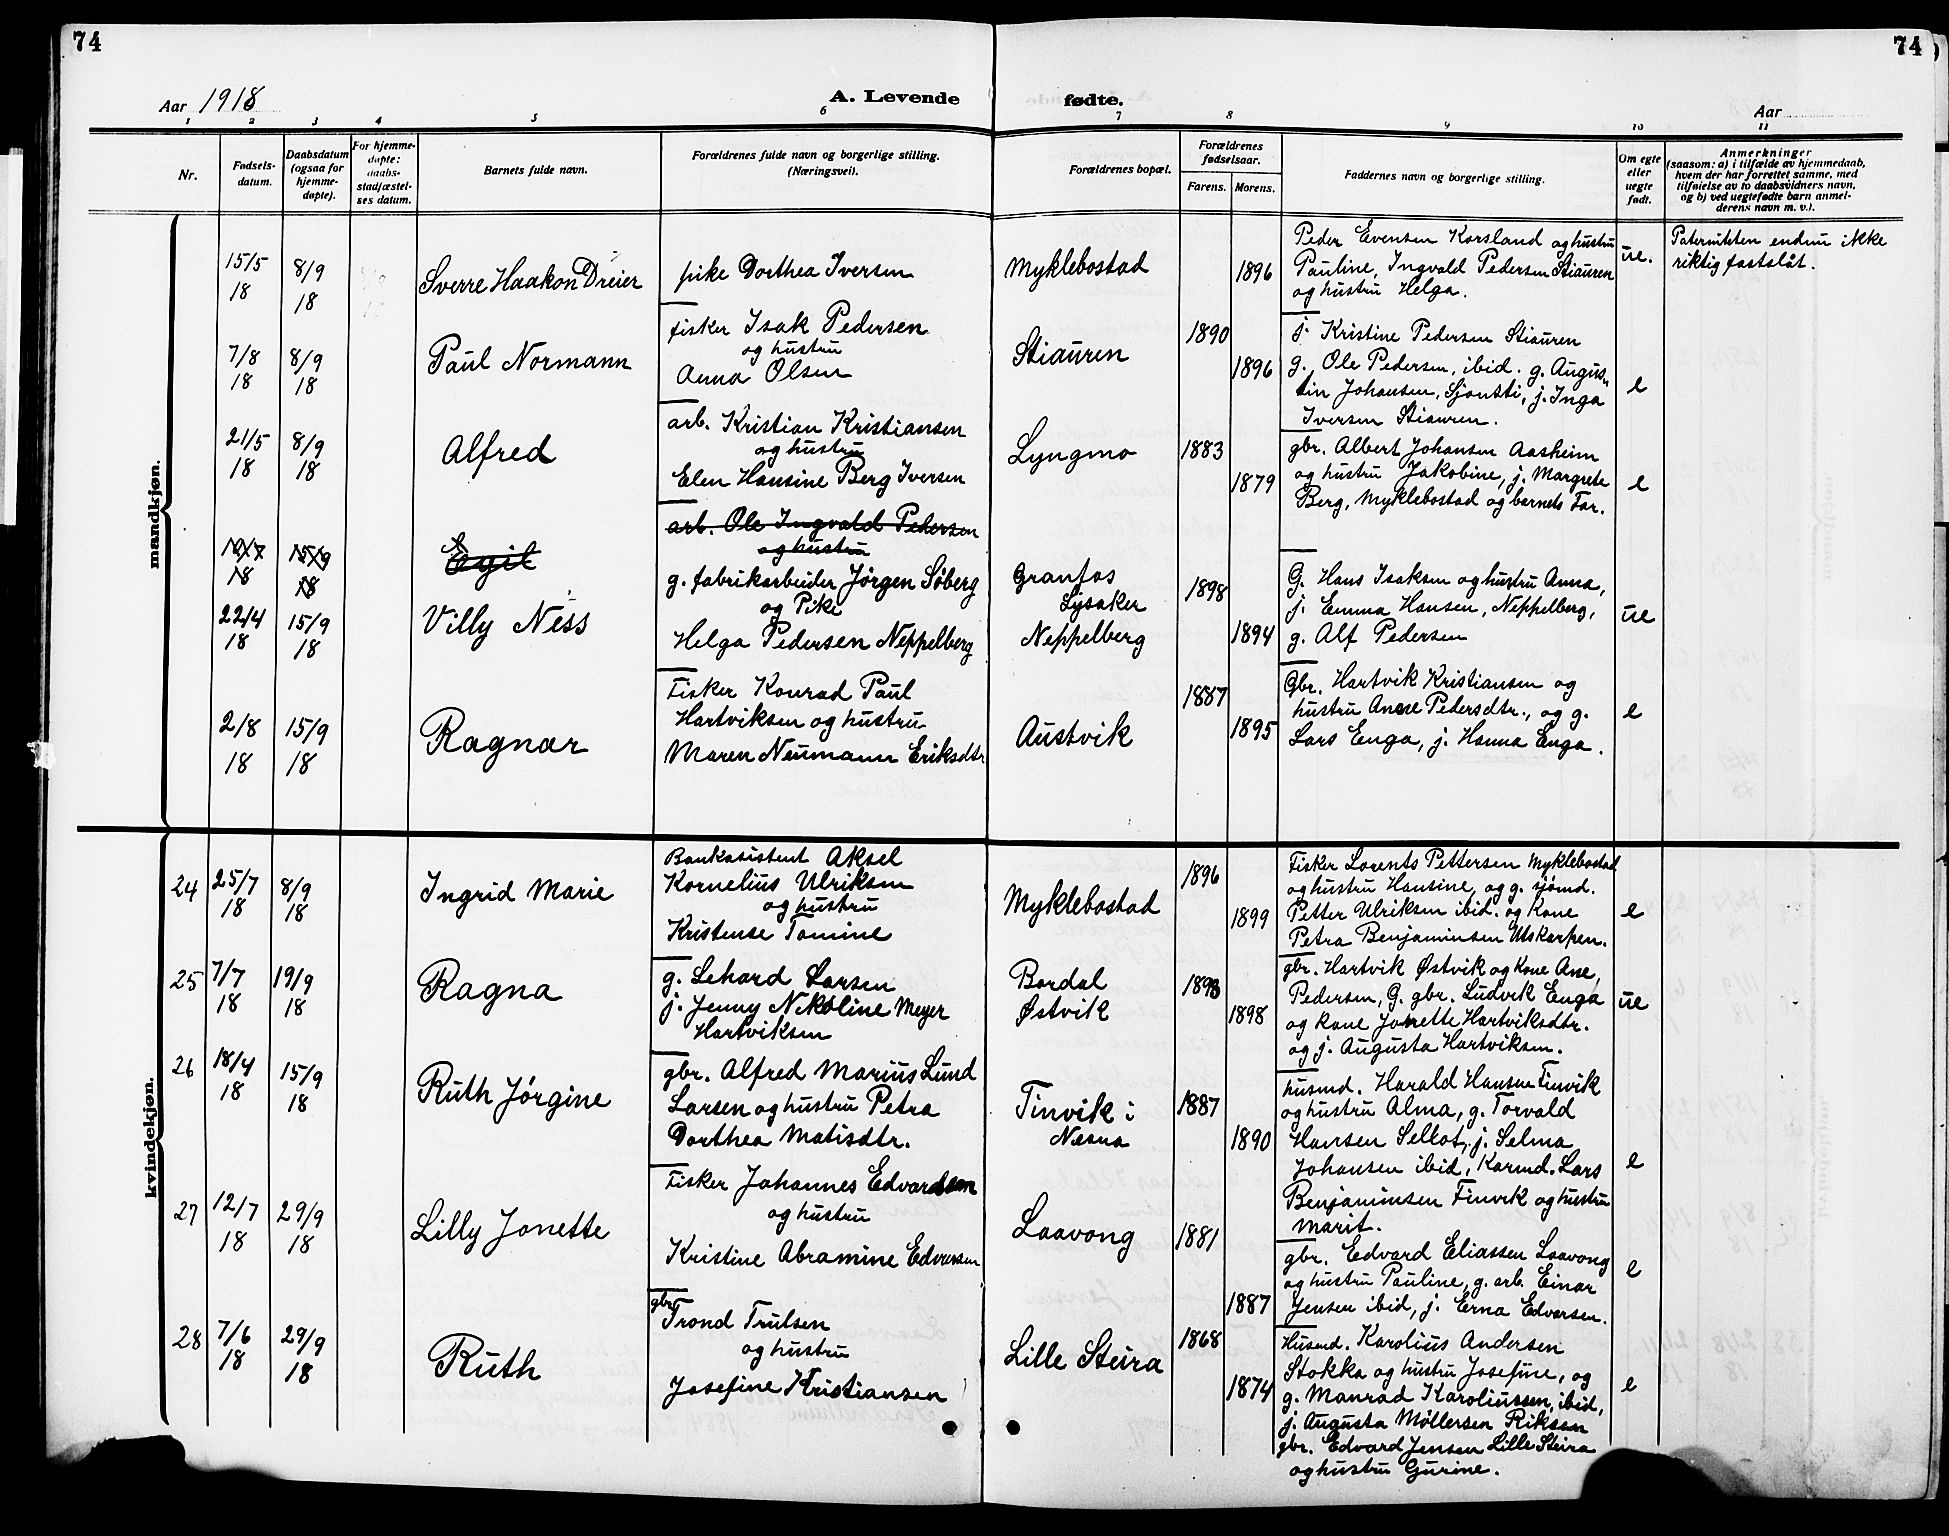 74
74
Aar 1918
A. Levende
fødte.
Aar
1 2 3 4 5 6 7 8 9 10 11
Nr.
Fødsels-
datum.
Daabsdatum
(ogsaa for
hjemme-
døpte).
For hjemme-
døpte:
daabs-
stadfæstel-
ses datum.
Barnets fulde navn.
Forældrenes fulde navn og borgerlige stilling.
(Næringsvei).
Forældrenes bopæl.
Forældrenes
fødselsaar.
Farens. Morens.
Faddernes navn og borgerlige stilling.
Om egte
eller
uegte
født.
Anmerkninger
(saasom: a) i tilfælde av hjemmedaab,
hvem der har forrettet samme, med
tilføielse av to daabsvidners navn,
og b) ved uegtefødte barn anmel-
derens navn m. v.).
mandkjøn.
15/5
18
8/9
18
Sverre Haakon Dreier
pike Dorthea Iversen
Myklebostad
1896
Peder Evensen Korsland og hustru
Pauline, Ingvald Pedersen Stiauren
og hustru Helga.
ue.
Paterniteten endnu ikke
riktig fastslåt.
7/8
18
8/9
18
Paul Normann
fisker Isak Pedersen
og hustru
Anna Olsen
Stiauren
1890
1896
j. Kristine Pedersen Stiauren
g. Ole Pedersen, ibid. g. Augus-
tin Johansen, Sjonsti, j. Inga
Iversen Stiauren.
e
21/5
18
8/9
18
Alfred
arb. Kristian Kristiansen
og hustru
Elen Hansine Berg Iversen
Lyngmo
1883
1879
gbr. Albert Johansen Aasheim
og hustru Jakobine, j. Margrete
Berg, Myklebostad og barnets Far.
e
18
15/9
18
Egil
arb. Ole Ingvald Pedersen
og hustru
22/4
18
15/9
18
Villy Ness
g. fabrikarbeider Jørgen Søberg
og Pike
Helga Pedersen Neppelberg
Granfos
Lysaker
Neppelberg
1898
1894
G. Hans Isaksen og hustru Anna,
j. Emma Hansen, Neppelberg,
g. Alf Pedersen
ue
2/8
18
15/9
18
Ragnar
Fisker Konrad Paul
Hartviksen og hustru
Maren Neumann Eriksdtr
Austvik
1887
1895
Gbr. Hartvik Kristiansen og
hustru Anne Pedersdtr., og g.
Lars Enga, j. Hanna Enga.
e
kvindekjøn.
24
25/7
18
8/9
18
Ingrid Marie
Bankasistent Aksel
Kornelius Ulriksen
og hustru
Kristense Tomine
Myklebostad
1896
1899
Fisker Lorents Pettersen Myklebostad
og hustru Hansine, og g. sjømd.
Petter Ulriksen ibid. og Kone
Petra Benjaminsen Utskarpen.
e
25
7/7
18
19/9
18
Ragna
g. Lehard Larsen
j. Jenny Nikoline Meyer
Hartviksen
Bardal
Østvik
1898
1898
gbr. Hartvik Østvik og Kone Ane,
Pedersen, G. gbr. Ludvik Enga
og kone Jonette Hartviksdtr.
og j. Augusta Hartviksen.
ue
26
18/4
18
15/9
18
Ruth Jørgine
gbr. Alfred Marius Lund
Larsen og hustru Petra
Dorthea Matisdtr.
Finvik i
Nesna
1887
1890
husmd. Harald Hansen Finvik
og hustru Alma, g. Torvald
Hansen Selkot, j. Selma
Johansen ibid, Karmd. Lars
Benjaminsen Finvik og hustru
Marit.
e
27
12/7
18
29/9
18
Lilly Jonette
Fisker Johannes Edvardsen
og hustru
Kristine Abramine Edvarsen
Laavong
1881
1887
gbr. Edvard Eliassen Laavong
og hustru Pauline, g. arb. Einar
Jensen ibid, j. Erna Edvarsen.
e
28
7/6
18
29/9
18
Ruth
gbr.
Trond Trulsen
og hustru
Josefine Kristiansen
Lille Steira
1868
1874
Husmd. Karolius Andersen
Stokka og hustru Josefine, og
g. Manrad Karoliussen, ibid,
j. Augusta Møllersen Riksem
gbr. Edvard Jensen Lille Steira
og hustru Gurine.
e